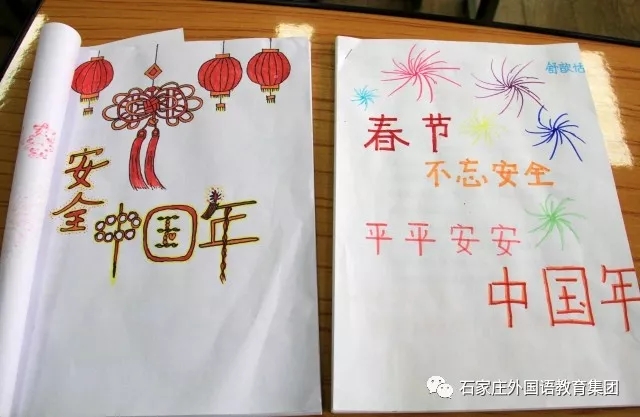 安全
中国年
舒歆恬
春节
不忘安全
平平安安
中国年
石家庄外国语教育集团